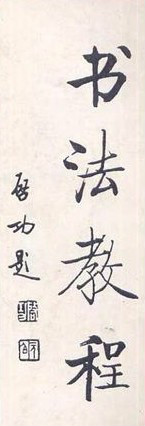 书法教程
启功题